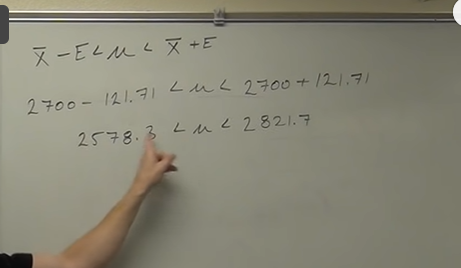 X̄ - E < μ < X̄ + E
2700 - 121.71 < μ < 2700 + 121.71
2578.3 < μ < 2821.7